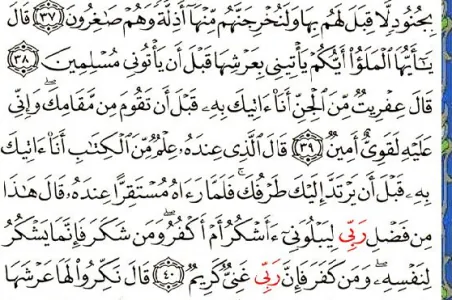 بِجُنُودٍ لَّا قِبَلَ لَهُم بِهَا وَلَنُخْرِجَنَّهُم مِّنْهَا أَذِلَّةً وَهُمْ صَٰغِرُونَ ٣٧ قَالَ
يَٰٓأَيُّهَا ٱلْمَلَؤُا۟ أَيُّكُمْ يَأْتِينِى بِعَرْشِهَا قَبْلَ أَن يَأْتُونِى مُسْلِمِينَ ٣٨
قَالَ عِفْرِيتٌ مِّنَ ٱلْجِنِّ أَنَا۠ ءَاتِيكَ بِهِۦ قَبْلَ أَن تَقُومَ مِن مَّقَامِكَ ۖ وَإِنِّى
عَلَيْهِ لَقَوِىٌّ أَمِينٌ ٣٩ قَالَ ٱلَّذِى عِندَهُۥ عِلْمٌ مِّنَ ٱلْكِتَٰبِ أَنَا۠ ءَاتِيكَ
بِهِۦ قَبْلَ أَن يَرْتَدَّ إِلَيْكَ طَرْفُكَ ۚ فَلَمَّا رَءَاهُ مُسْتَقِرًّا عِندَهُۥ قَالَ هَٰذَا
مِن فَضْلِ رَبِّى لِيَبْلُوَنِىٓ ءَأَشْكُرُ أَمْ أَكْفُرُ ۖ وَمَن شَكَرَ فَإِنَّمَا يَشْكُرُ
لِنَفْسِهِۦ ۖ وَمَن كَفَرَ فَإِنَّ رَبِّى غَنِىٌّ كَرِيمٌ ٤٠ قَالَ نَكِّرُوا۟ لَهَا عَرْشَهَا